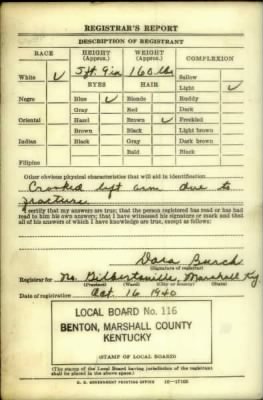 REGISTRAR'S REPORT
DESCRIPTION OF REGISTRANT
RACE HEIGHT (Approx.) WEIGHT (Approx.) COMPLEXION
White ✓ 5 ft. 9 in 160 lbs Sallow
EYES HAIR Light ✓
Negro Blue ✓ Blonde Ruddy
Gray Red Dark
Oriental Hazel Brown ✓ Freckled
Brown Black Light brown
Indian Black Gray Dark brown
Bald Black
Filipino
Other obvious physical characteristics that will aid in identification
Crooked left arm due to
fracture
I certify that my answers are true; that the person registered has read or has had
read to him his own answers; that I have witnessed his signature or mark and that
all of his answers of which I have knowledge are true, except as follows:
Dora Burch
(Signature of registrar)
Registrar for No. Gilbertsville, Marshall Ky
(Precinct) (Ward) (City or county) (State)
Date of registration Oct. 16 1940
LOCAL BOARD No. 116
BENTON, MARSHALL COUNTY
KENTUCKY
(STAMP OF LOCAL BOARD)
(The stamp of the Local Board having jurisdiction of the registrant
shall be placed in the above space.)
U. S. GOVERNMENT PRINTING OFFICE 16-17105